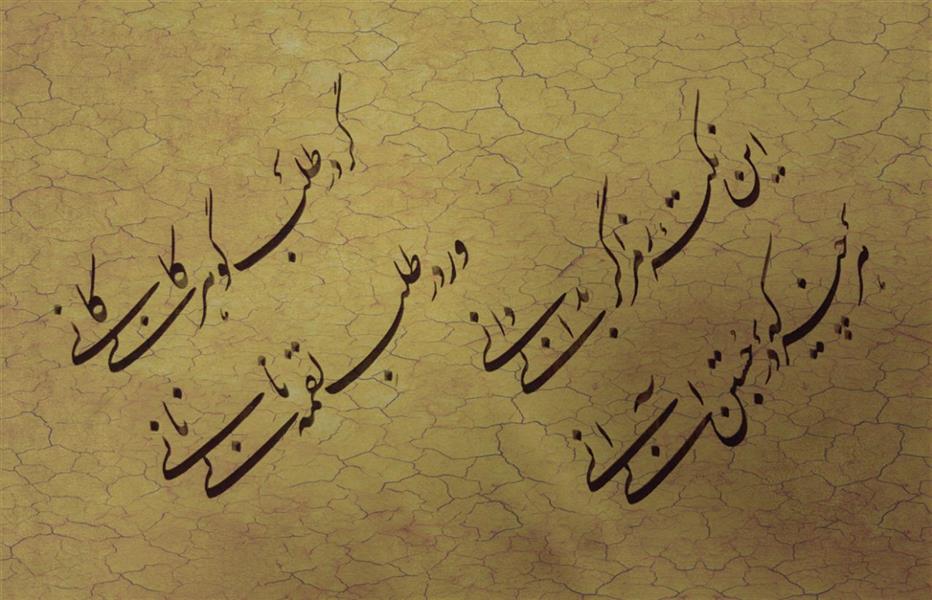 این نکته رمز اگر بدانی دانی
هر چیز که در جستن آنی آنی
گر در طلب گوهر کانی کانی
ور در طلب لقمه نانی نانی